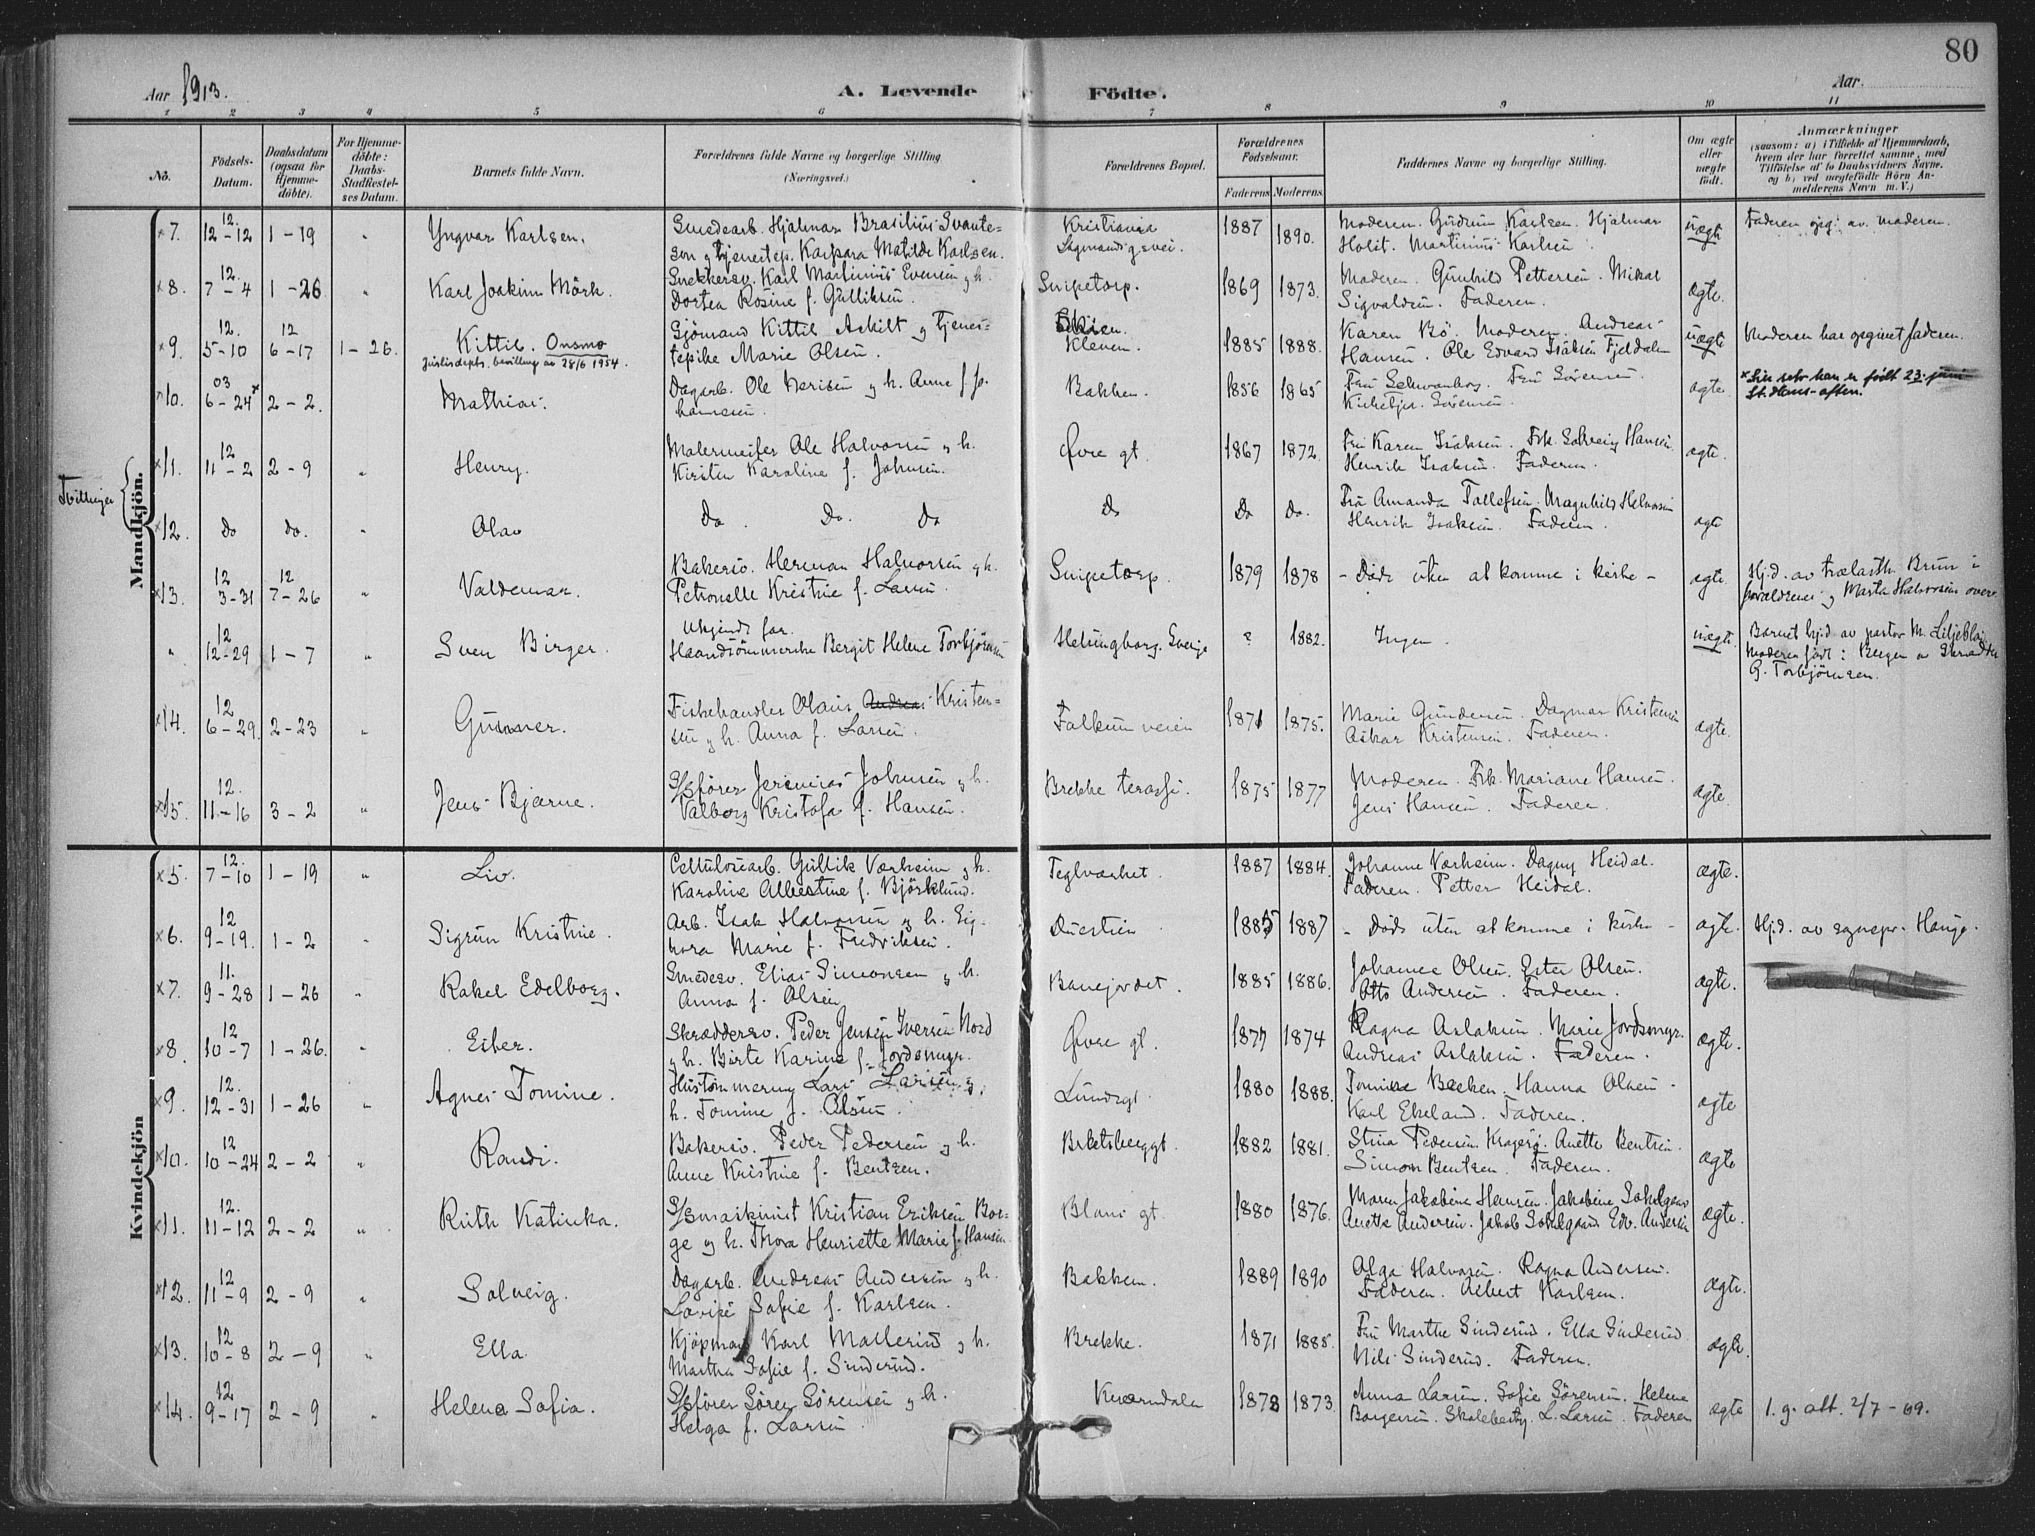 80
Aar 1913.
A. Levende Födte.
Aar.
1 2 3 4 5 6 7 8 9 10 11
No.
Födsels-Datum.
Daabsdatum (ogsaa for Hjemme-döbte).
For Hjemme-döbte: Daabs-Stadfæstel-ses Datum.
Barnets fulde Navn.
Forældrenes fulde Navne og borgerlige Stilling (Næringsvei.)
Forældrenes Bopæl.
Forældrenes Födselsaar.
Faderens Moderens
Faddernes Navne og borgerlige Stilling.
Om ægte eller uægte födt.
Anmærkninger
(saasom: a) i Tilfælde af Hjemmedaab, hvem der har forrettet samme, med Tilföielse af to Daabsvidners Navne, og b) ved uægtefödte Börn Anmelderens Navn m. V.)
Mandkjön.
x7. 12 12-12 1-19 " Yngvar Karlsen. Smedearb. Hjalmar Brasilius Svante-
son og tjenestep. Kaspara Matilde Karlsen. Kristiania 1887 1890. Moderen. Gudrun Karlsen. Hjalmar
Holst. Martinius Karlsen. uægte
x8. 12 7-4 1-26 " Karl Joakim Mörk. Snekkersv. Karl Martinius Evensen og h.
Dortea Rosine f. Gulliksen. Snipetorp. 1869 1873. Moderen. Gunhild Pettersen. Mikal
Sigvaldsen. Faderen. ægte.
x9. 12 5-10 12 6-17 1-26. Kittil. Onsmo
Justisdepts. bevilling av 28/6 1954. Sjömand Kittil Askilt og tjenes-
tepike Marie Olsen. Kleven. 1885 1888. Karen Bö. Moderen. Andreas
Hansen. Ole Edvard Isaksen Fjeldalen uægte Moderen har opgivet faderen.
x10. 03 6-24x 2-2. Mathias. Dagarb. Ole Nerisen og h. Anne f. Jo-
hannesen. Bakken. 1856 1865 Fru Schwanborg. Fru Sörensen.
Kirketj. Sörensen. ægte. x Sier selv han er født 23. juni
St. Hans-aften.
Tvillinger
x11. 12 11-2 2-9 " Henry. Malermester Ole Halvorsen og h.
Kirsten Karoline f. Johnsen. Øvre gt. 1867 1872. Fru Karen Isaksen. Frk. Solveig Hansen
Henrik Isaksen. Faderen. ægte.
x12. Do Do. " Olav Do. Do. Do Do Do Do. Fru Amanda Tallefsen. Magnhild Halvorsen
Henrik Isaksen. Faderen. ægte
x13. 12 3-31 12 7-26 " Valdemar. Bakersv. Herman Halvorsen og h.
Petronelle Kristine f. Larsen. Snipetorp. 1879 1878 - Döde uten at komme i kirke - ægte. Hj.d. av trælasth. Brun i
forældrenes og Marta Halvorsens overv.
" 12 12-29 1-7 " Sven Birger. Ukjendt far.
Haandsömmerske Bergit Helene Torbjörnsen Helsingborg. Sverige ? 1882. Ingen. uægte. Barnet hj.d. av pastor M. Liljeblad
Moderen födt i Bergen
G. Torbjörnsen.
x14. 12 6-29. 2-23 " Gunnar. Fiskehandler Olaus Andreas Kristen-
sen og h. Anna f. Larsen. Falkum veien 1871 1875. Marie Gundersen. Dagmar Kristensen
Oskar Kristensen. Faderen. ægte.
x15. 12. 11-16 3-2 " Jens Bjarne. S/sförer Jeremias Johnsen og h.
Valborg Kristofa f. Hansen. Brekke terasse. 1875 1877 Moderen. Frk. Mariane Hansen.
Jens Hansen. Faderen. ægte.
Kvindekjön
x5. 12. 7-10 1-19 " Liv. Cellulosearb. Gullik Værheim og h.
Karoline Albertine f. Björklund. Teglværket. 1887 1884. Johanne Værheim. Dagny Heidal.
Faderen. Petter Heidal. ægte.
x6. 12 9-19. 1-2 " Sigrun Kristine. Arb. Isak Halvorsen og h. Sig-
nora Marie f. Fredriksen. Duestien 1885 1887 - Döde uten at komme i kirke - ægte. Hj.d. av sognepr. Hauge.
x7. 11. 9-28 1-26 " Rakel Edelborg. Smedesv. Elias Simonsen og h.
Anna f. Olsen Banejordet. 1885 1886. Johanne Olsen. Ester Olsen.
Otto Andersen. Faderen. ægte.
x8. 12 10-7 1-26. " Ester. Skræddersv. Peder Jensen Iversen Nord
og h. Birte Karine f. Jordsmyr. Øvre gt. 1877 1874 Ragna Aslaksen. Marie Jordsmyr.
Andreas Aslaksen. Faderen. ægte.
x9. 12. 12-31 1-26 " Agnes Tomine. Hustömmerm. Lars Larsen og
h. Tomine f. Olsen. Lundegt. 1880 1888. Tomine Bakken. Hanna Olsen.
Karl Ekeland. Faderen. ægte
x10. 12 10-24 2-2 " Randi. Bakersv. Peder Pedersen og h.
Anne Kristine f. Bentzen. Bratsberggt. 1882 1881. Stina Pedersen Kragerö. Anette Bentsen.
Simon Bentzen. Faderen. ægte
x11. 12. 11-12 2-2 " Ruth Katinka. S/smaskinist Kristian Eriksen Bor-
ge og h. Thora Henriette Marie f. Hansen. Blaus gt. 1880 1876. Maren Jakobine Hansen. Jakobine Solelgaas
Anette Andersen. Jakob Edv. Andersen ægte.
x12. 12 11-9 2-9 " Solveig. Dagarb. Andreas Andersen og h.
Lovise Sofie f. Karlsen. Bakken. 1889 1890 Olga Halvorsen. Ragna Andersen.
Faderen. Albert Karlsen. ægte.
x13. 12 10-8 2-9 " Ella. Kjöpmand Karl Mallerud og h.
Martha Sofie f. Sinderud. Brekke. 1871 1885. Fru Marthe Sinderud. Ella Sinderud
Nils Sinderud. Faderen. ægte.
x14. 12 9-17 2-9 " Helene Sofia. S/sförer Sören Sörensen og h.
Helga f. Larsen Kværndalen 1873 1873. Anna Larsen. Sofie Sörensen. Helene
Borgersen. Skolebesty. L. Larsen. Faderen ægte 1.g. att. 2/7-69.